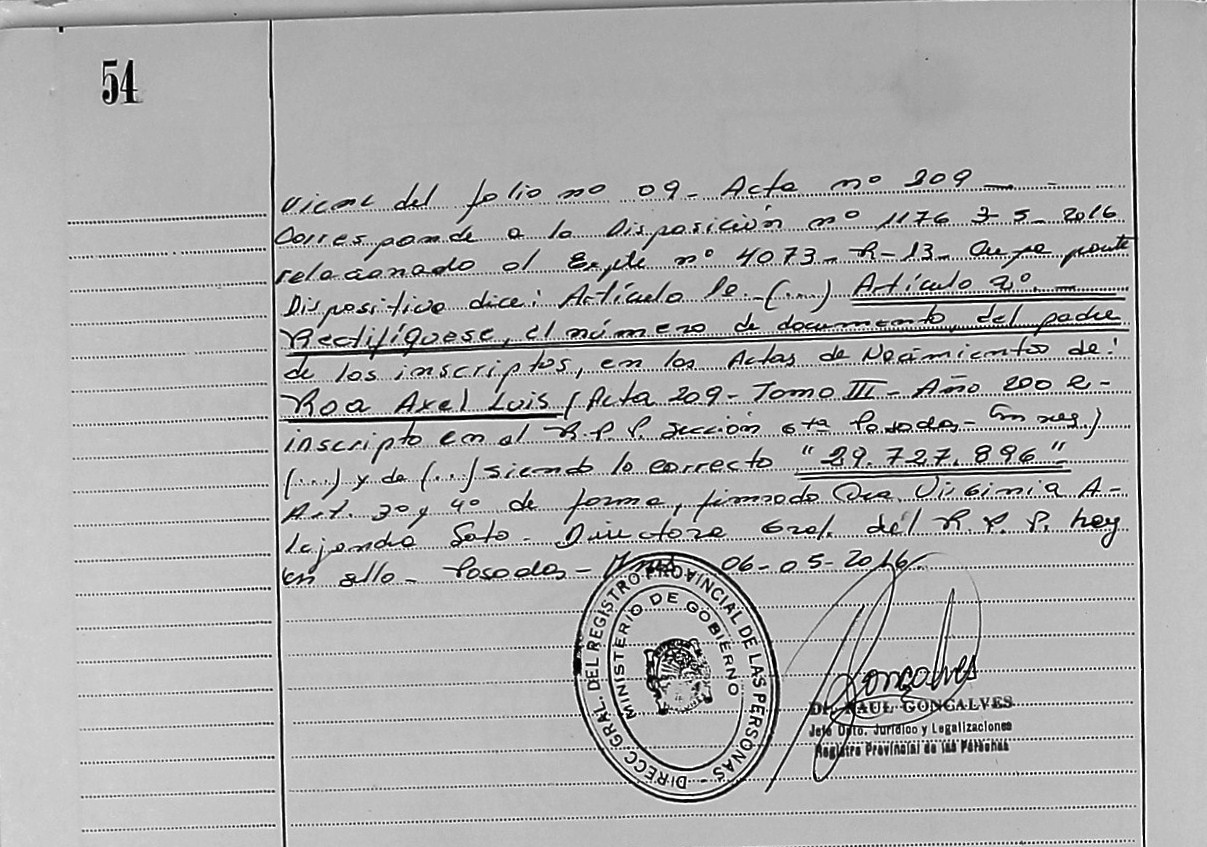 54
del folio nº 09- Acta nº 209
Corresponde a la Disposición nº 1176 3-5-2016
relacionado al Expte nº 4073-R-13- Cuya parte
Dispositiva dice: Artículo 1º.-(...) Artículo 2º.
Rectifíquese, el número de documento, del padre
de los inscriptos, en las Actas de Nacimientos de:
Roa Axel Luis (Acta 209- Tomo III- Año 2002-
inscripto en el R.P.P. sección 6ta Posadas-
(...) y de (...) siendo lo correcto "29.727.896"
Art. 3º y 4º de forma, firmado Dra. Virginia A-
lejandra Soto- Directora Gral. del R.P.P. hoy
Posadas- Mnes 06-05-2016
DIRECC. GRAL. DEL REGISTRO PROVINCIAL DE LAS PERSONAS -
MINISTERIO DE GOBIERNO
Goncalves
Dr. RAUL GONCALVES
Jefe Dpto. Jurídico y Legalizaciones
Registro Provincial de las Personas